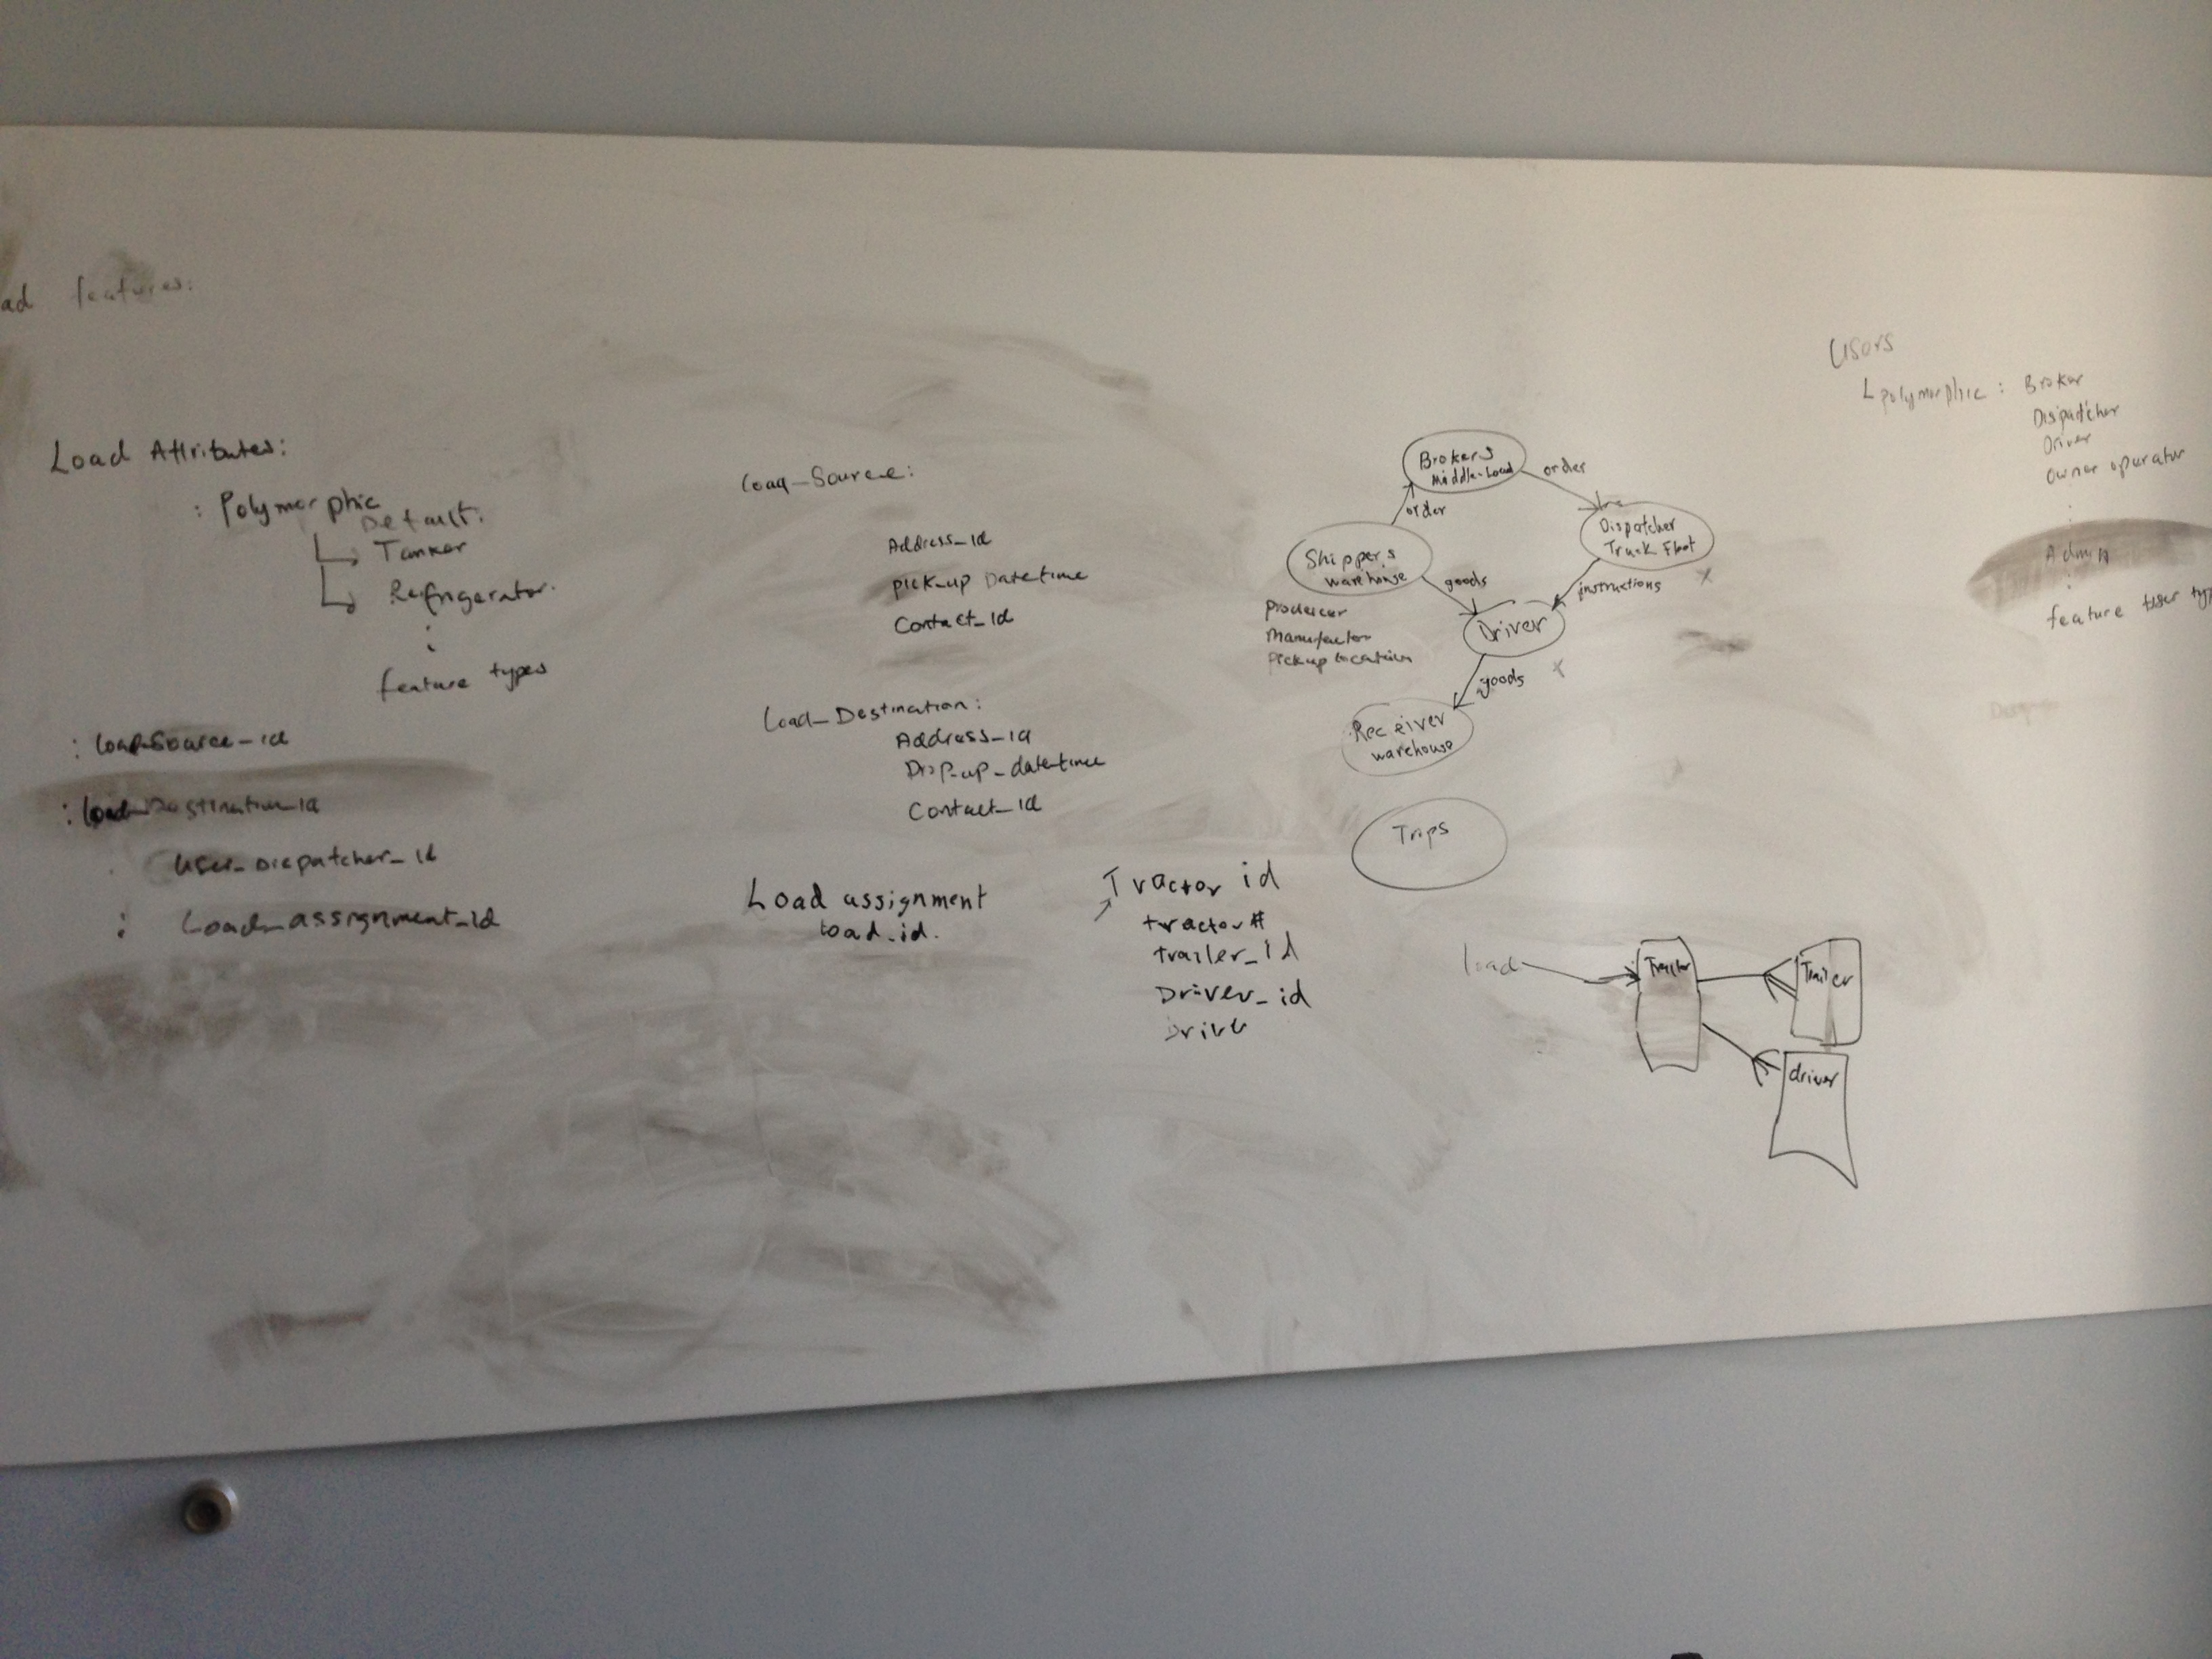 ad features:
Load Attributes:
: Polymorphic
Default:
Tanker
Refrigerator.
feature types
: load_Source_id
: load_Destination_id
User_Dispatcher_id
: Load_assignment_id
load_Source:
Address_id
pick_up Datetime
Contact_id
Load_Destination:
Address_id
Drop_up_datetime
Contact_id
Load assignment
load_id.
Tractor id
tractor #
trailer_id
Driver_id
Drive
Brokers
Middle-Load
order
order
Dispatcher
Truck Fleet
Shippers
warehouse
goods
instructions
x
producer
Manufactor
Pickup location
Driver
goods
x
Receiver
warehouse
Trips
load
Tractor
Trailer
driver
Users
polymorphic : Broker
Dispatcher
Driver
owner operator
Admin
feature user typ